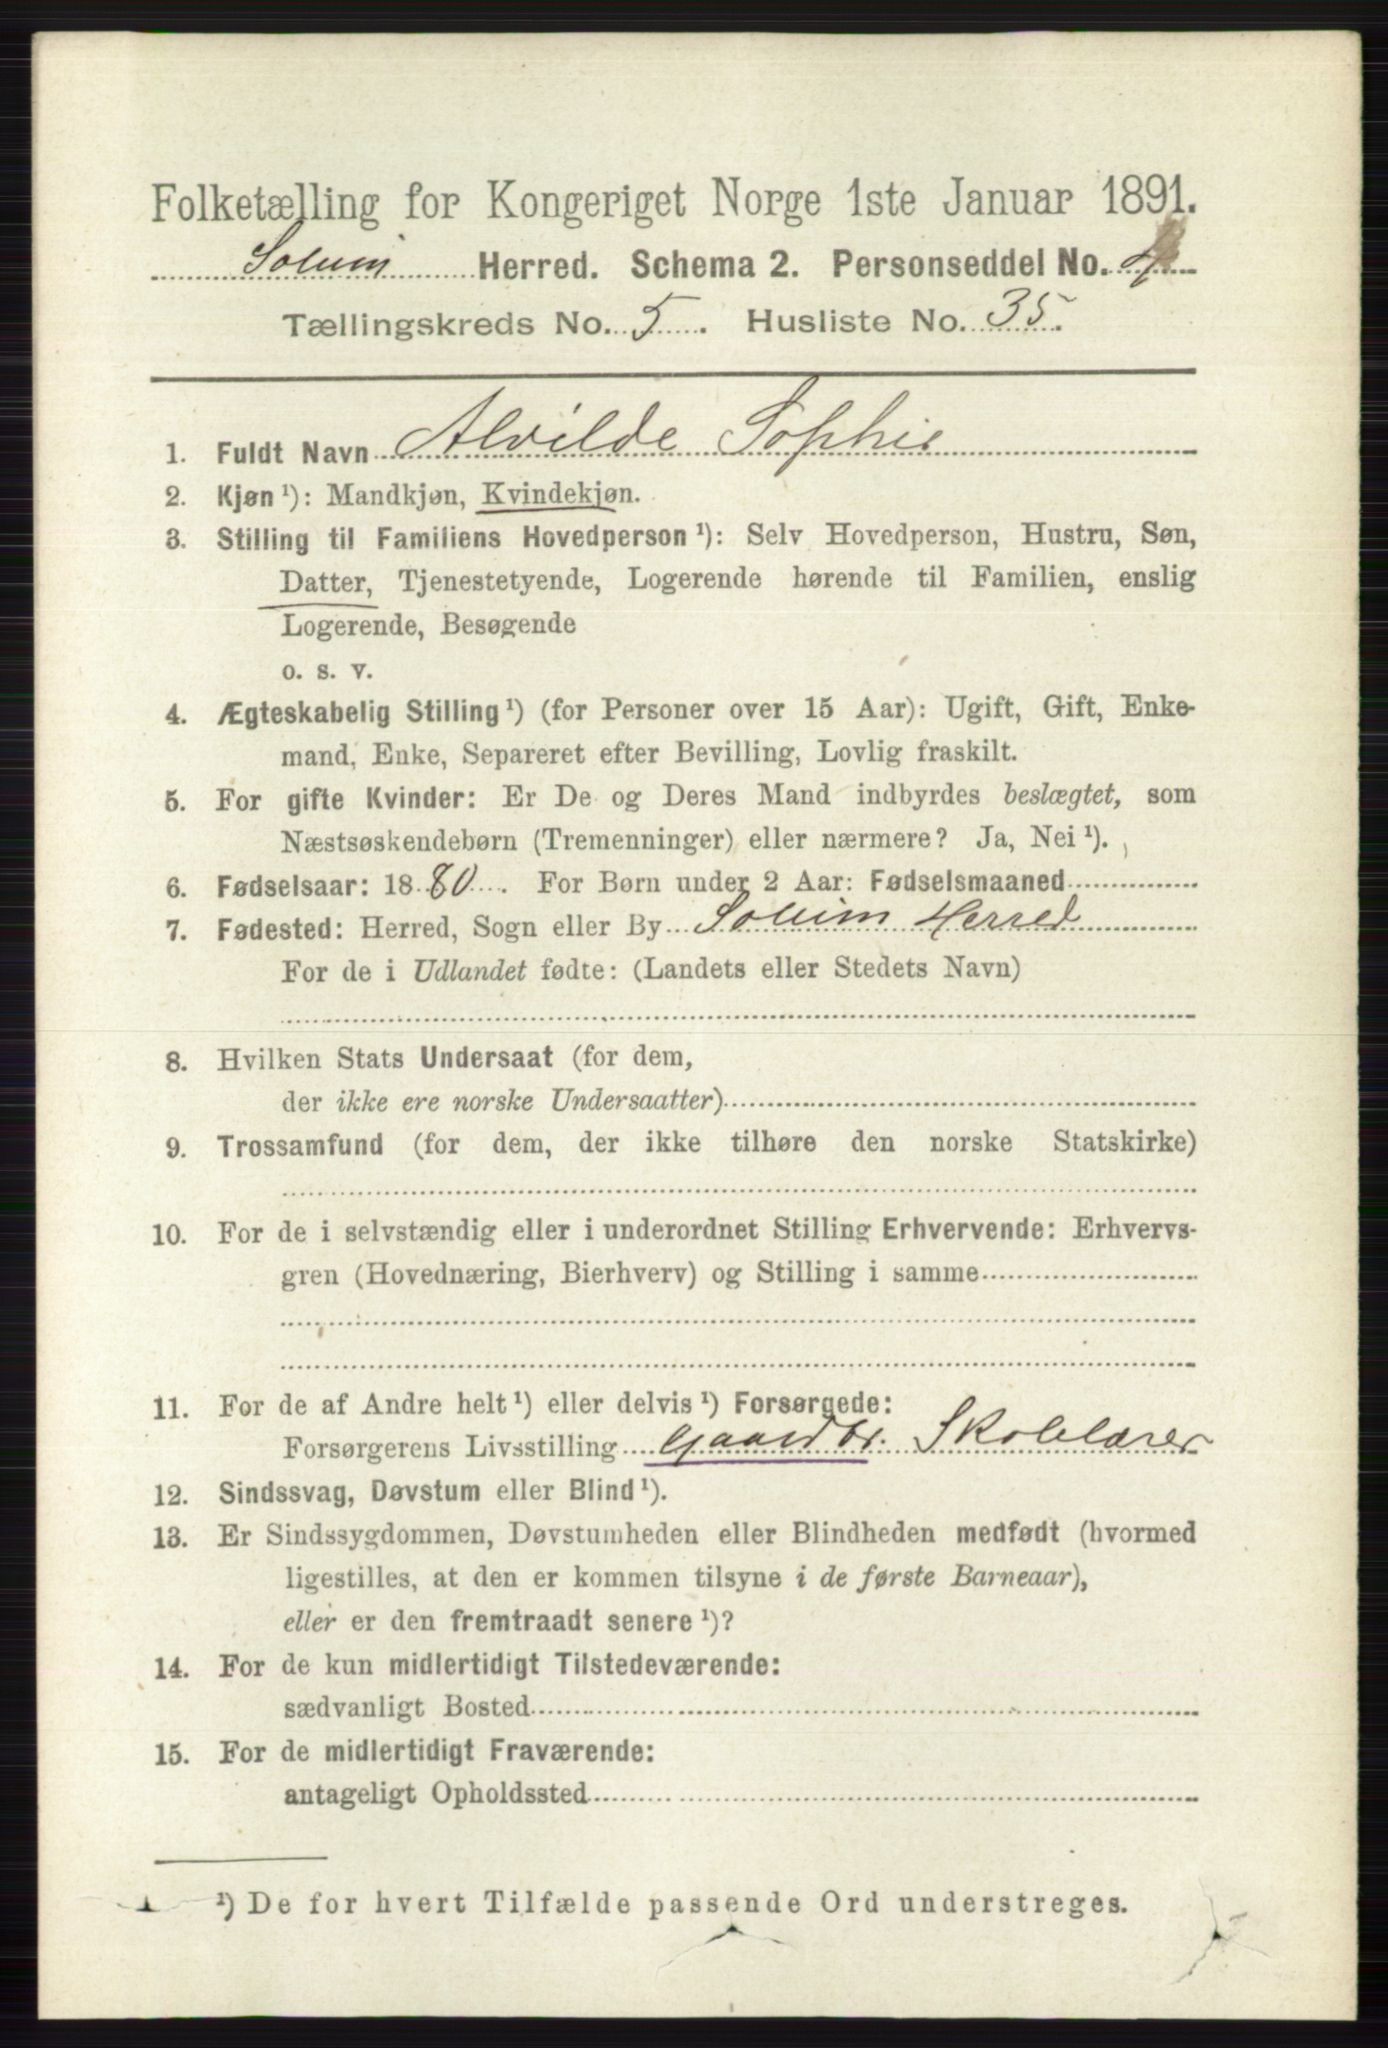 Folketælling for Kongeriget Norge 1ste Januar 1891.
Solum Herred. Schema 2. Personseddel No. 4
Tællingskreds No. 5. Husliste No. 35.
1. Fuldt Navn Alvilde Sophie
2. Kjøn ¹): Mandkjøn, Kvindekjøn.
3. Stilling til Familiens Hovedperson ¹): Selv Hovedperson, Hustru, Søn,
Datter, Tjenestetyende, Logerende hørende til Familien, enslig
Logerende, Besøgende
o. s. v.
4. Ægteskabelig Stilling ¹) (for Personer over 15 Aar): Ugift, Gift, Enke-
mand, Enke, Separeret efter Bevilling, Lovlig fraskilt.
5. For gifte Kvinder: Er De og Deres Mand indbyrdes beslægtet, som
Næstsøskendebørn (Tremenninger) eller nærmere? Ja, Nei ¹).
6. Fødselsaar: 1880. For Børn under 2 Aar: Fødselsmaaned
7. Fødested: Herred, Sogn eller By Solum Herred
For de i Udlandet fødte: (Landets eller Stedets Navn)
8. Hvilken Stats Undersaat (for dem,
der ikke ere norske Undersaatter)
9. Trossamfund (for dem, der ikke tilhøre den norske Statskirke)
10. For de i selvstændig eller i underordnet Stilling Erhvervende: Erhvervs-
gren (Hovednæring, Bierhverv) og Stilling i samme
11. For de af Andre helt ¹) eller delvis ¹) Forsørgede:
Forsørgerens Livsstilling Gaardbr. Skolelærer
12. Sindssvag, Døvstum eller Blind ¹).
13. Er Sindssygdommen, Døvstumheden eller Blindheden medfødt (hvormed
ligestilles, at den er kommen tilsyne i de første Barneaar),
eller er den fremtraadt senere ¹)?
14. For de kun midlertidigt Tilstedeværende:
sædvanligt Bosted
15. For de midlertidigt Fraværende:
antageligt Opholdssted
¹) De for hvert Tilfælde passende Ord understreges.